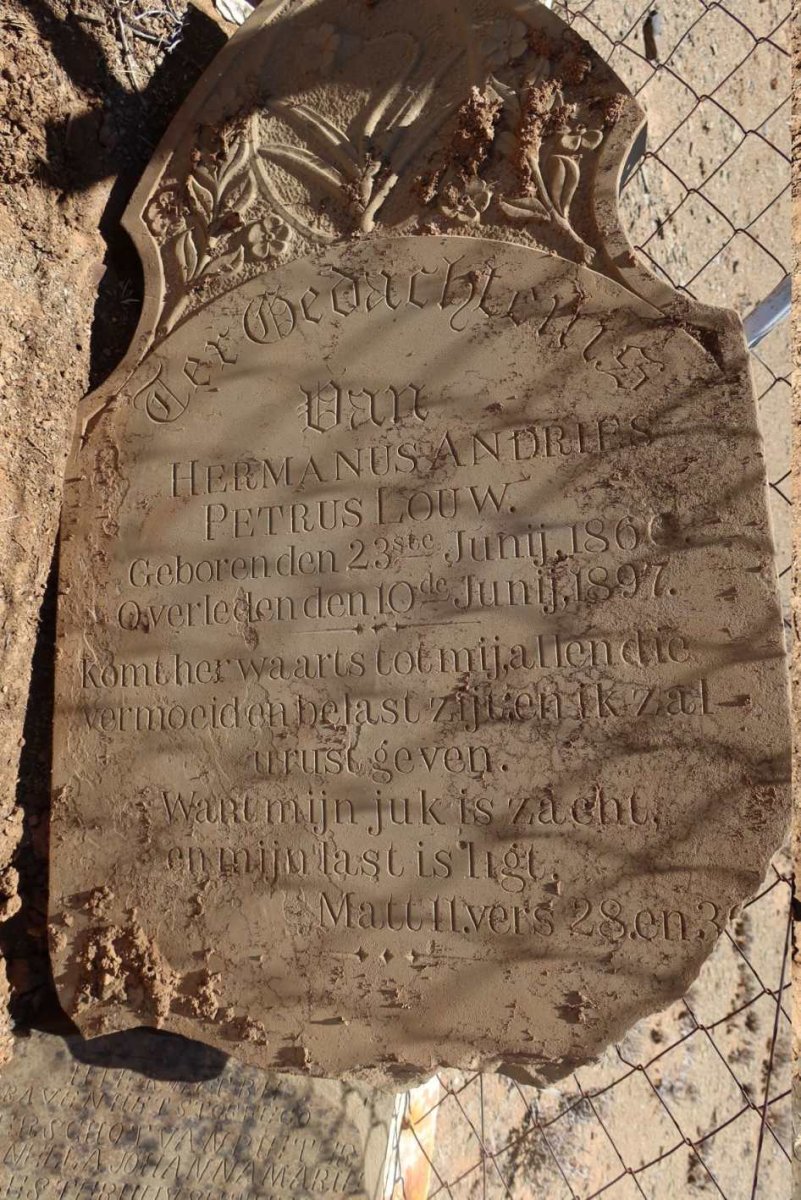 Ter Gedachtenis
Van
HERMANUS ANDRIES
PETRUS LOUW.
Geboren den 23ste Junij, 186
Overleden den 10de Junij, 1897.
Komt herwaarts tot mij, allen die
vermoeid en belast zijt, en ik zal
u rust geven.
Want mijn juk is zacht,
en mijn last is ligt.
Matt 11. vers 28. en 3
JOHANNA MARI